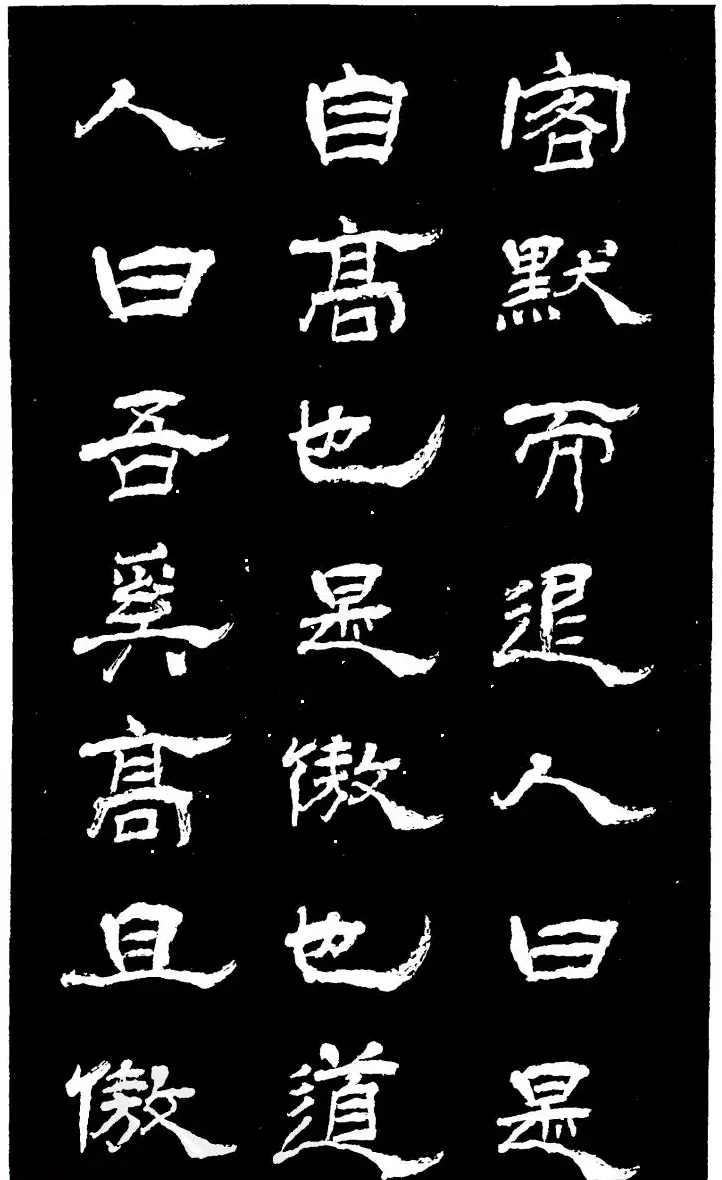 客默而退人曰是
自高也是傲也道
人曰吾奚高且傲